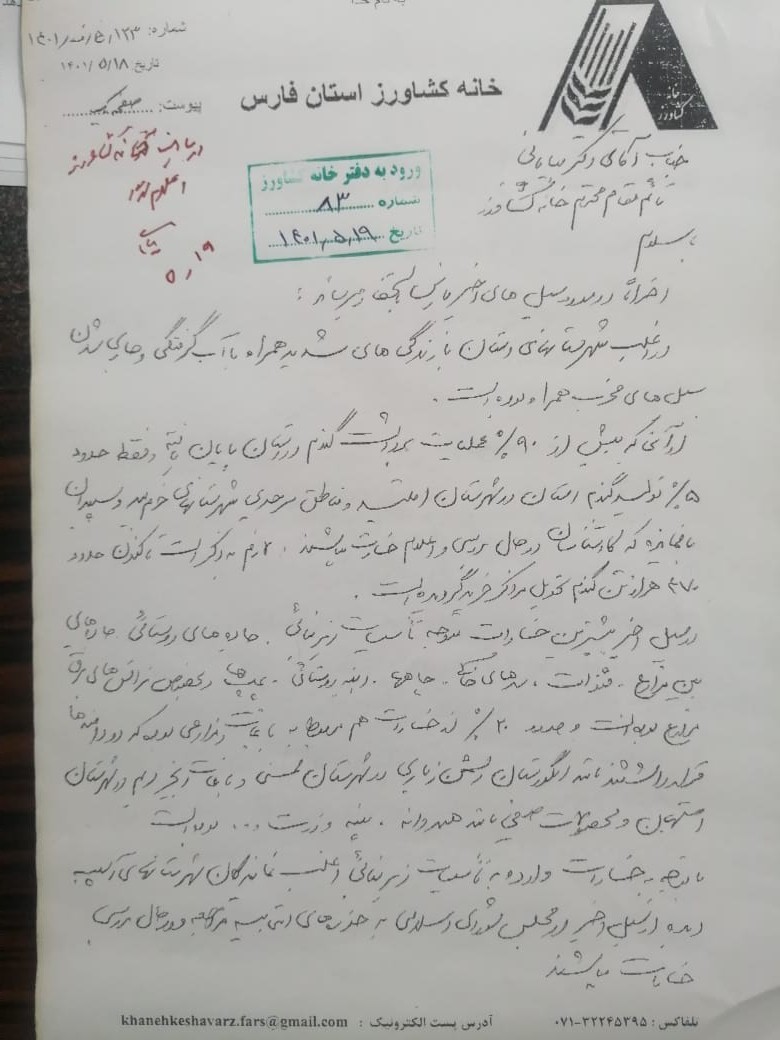 شماره: ۱۲۳/خ/ف/۱۴۰۱
تاریخ: ۱۴۰۱/۵/۱۸
پیوست:
خانه کشاورز استان فارس
خانه
کشاورز
ورود به دفتر خانه کشاورز
شماره ۸۳
تاریخ ۱۴۰۱/۵/۱۹
۵/۱۹
جناب آقای دکتر
قائم مقام محترم خانه کشاورز
با سلام
احتراماً در مورد سیل های اخیر به استحضار میرساند :
در اغلب شهرستانهای استان بارندگی های شدید همراه با آب گرفتگی و جاری شدن
سیل های مخرب همراه بوده است .
از آنجا که بیش از ۹۰٪ عملیات برداشت گندم در استان پایان یافته و فقط حدود
۵٪ تولید گندم استان در شهرستان اقلید و مناطق سرحدی شهرستانهای خرم بید و سپیدان
باقیمانده که کارشناسان در حال بررسی و اعلام خسارت میباشند . لازم به ذکر است تاکنون حدود
هزار تن گندم تحویل مراکز خرید گردیده است .
در سیل اخیر بیشترین خسارات متوجه تأسیسات زیربنائی . جاده های روستائی جاده های
بین مزارع . قنوات ، بندهای خاکی ، چاهها . ابنیه روستائی . پمپ ها و بخصوص ترانس های برق
مزارع بوده است و حدود ۲۰٪ از خسارات هم مربوط به باغات و مزارعی بوده که در دامنه ها
قرار داشتند مانند انگورستان دشمن زیاری در شهرستان ممسنی و باغات انجیر دیم در شهرستان
استهبان و محصولات صیفی مانند هندوانه . پنبه و ذرت و ... بوده است
با توجه به خسارات وارده به تأسیسات زیربنائی اغلب نمایندگان شهرستانهای آسیب
دیده از سیل اخیر در مجلس شورای اسلامی به حوزه های انتخابیه مراجعه و در حال بررسی
خسارات میباشند
تلفاکس : ۳۲۲۴۵۳۹۵-۰۷۱ آدرس پست الکترونیک : khanehkeshavarz.fars@gmail.com